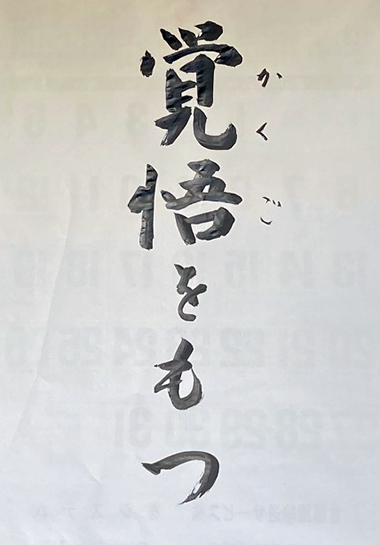 覚悟をもつ
かくご